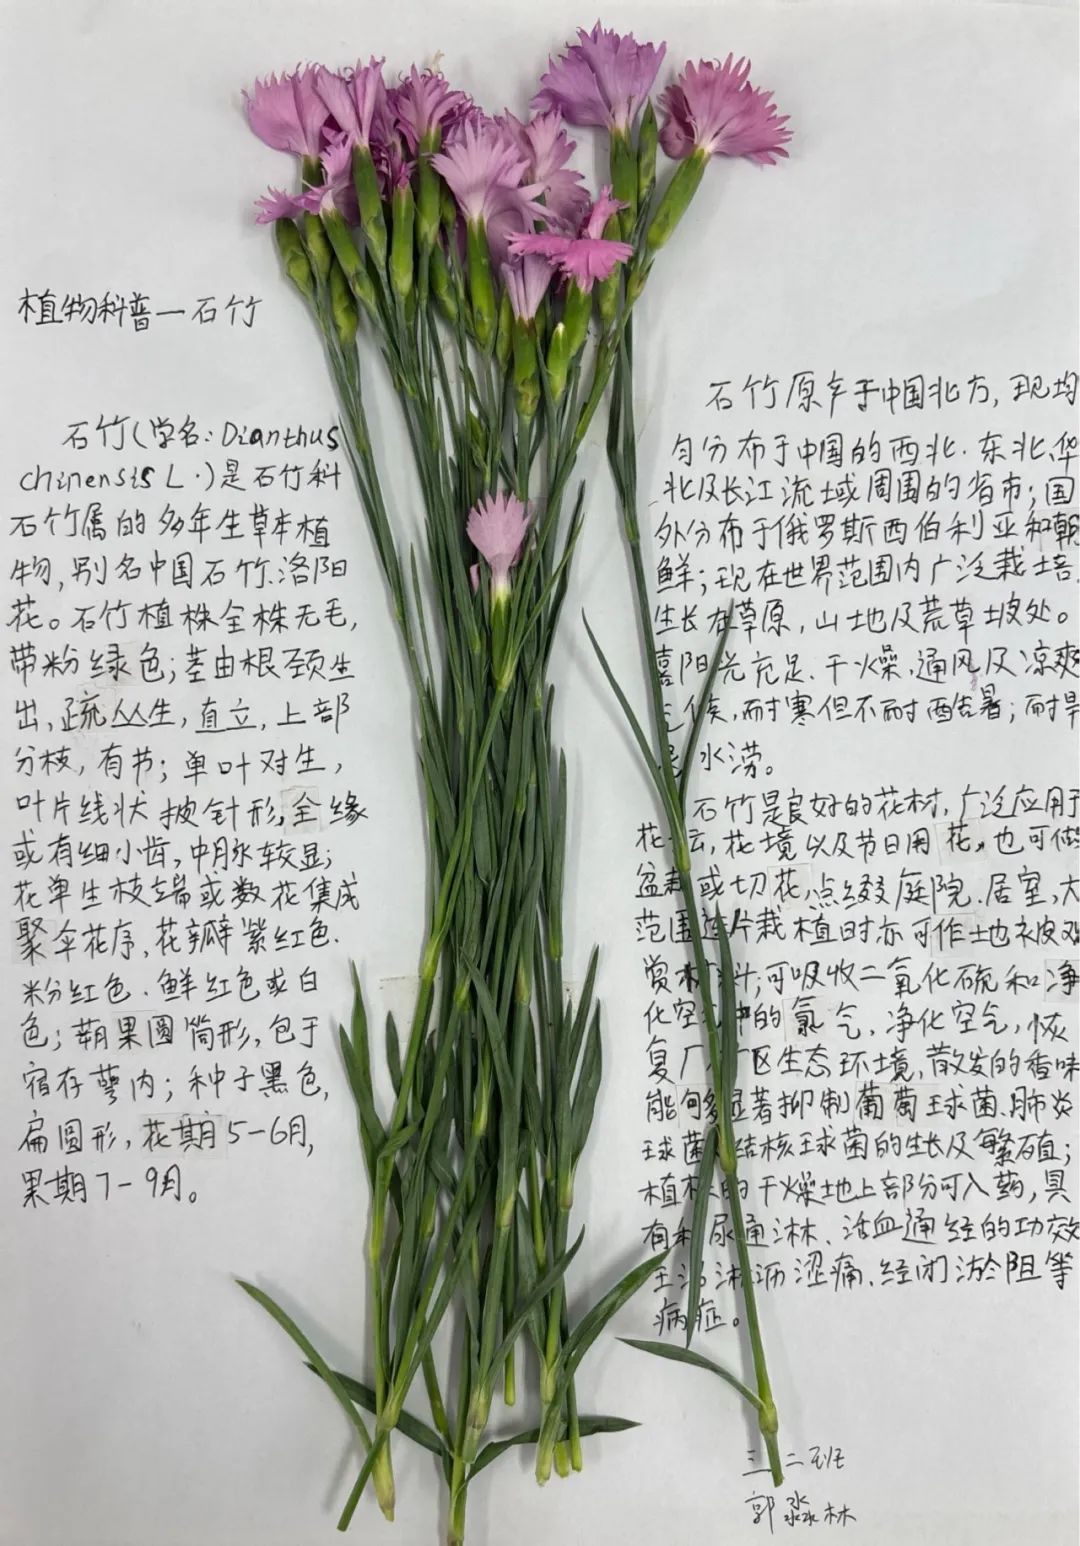 植物科普一石竹
石竹(学名:Dianthus
chinensis L.)是石竹科
石竹属的多年生草本植
物,别名中国石竹、洛阳
花。石竹植株全株无毛,
带粉绿色;茎由根颈生
出,疏丛生,直立,上部
分枝,有节;单叶对生,
叶片线状披针形,全缘
或有细小齿,中脉较显;
花单生枝端或数花集成
聚伞花序,花瓣紫红色.
粉红色、鲜红色或白
色;蒴果圆筒形,包于
宿存萼内;种子黑色,
扁圆形,花期5-6月,
果期7-9月。
石竹原产于中国北方,现均
匀分布于中国的西北.东北.华
北及长江流域周围的省市;国
外分布于俄罗斯西伯利亚和朝
鲜;现在世界范围内广泛栽培.
生长在草原,山地及荒草坡处。
喜阳光充足.干燥,通风及凉爽
候,耐寒但不耐酷暑;耐旱
水涝。
石竹是良好的花材,广泛应用于
花坛,花境以及节日用花,也可做
盆栽或切花,点缀庭院.居室,大
范围连片栽植时亦可作地被观
赏材料;可吸收二氧化硫和净
化空中的氯气,净化空气,恢
复厂矿区生态环境,散发的香味
能够显著抑制葡萄球菌、肺炎
球菌结核球菌的生长及繁殖;
植株的干燥地上部分可入药,具
有利尿通淋、活血通经的功效
主治淋沥涩痛、经闭淤阻等
病症。
三二班
郭淼林